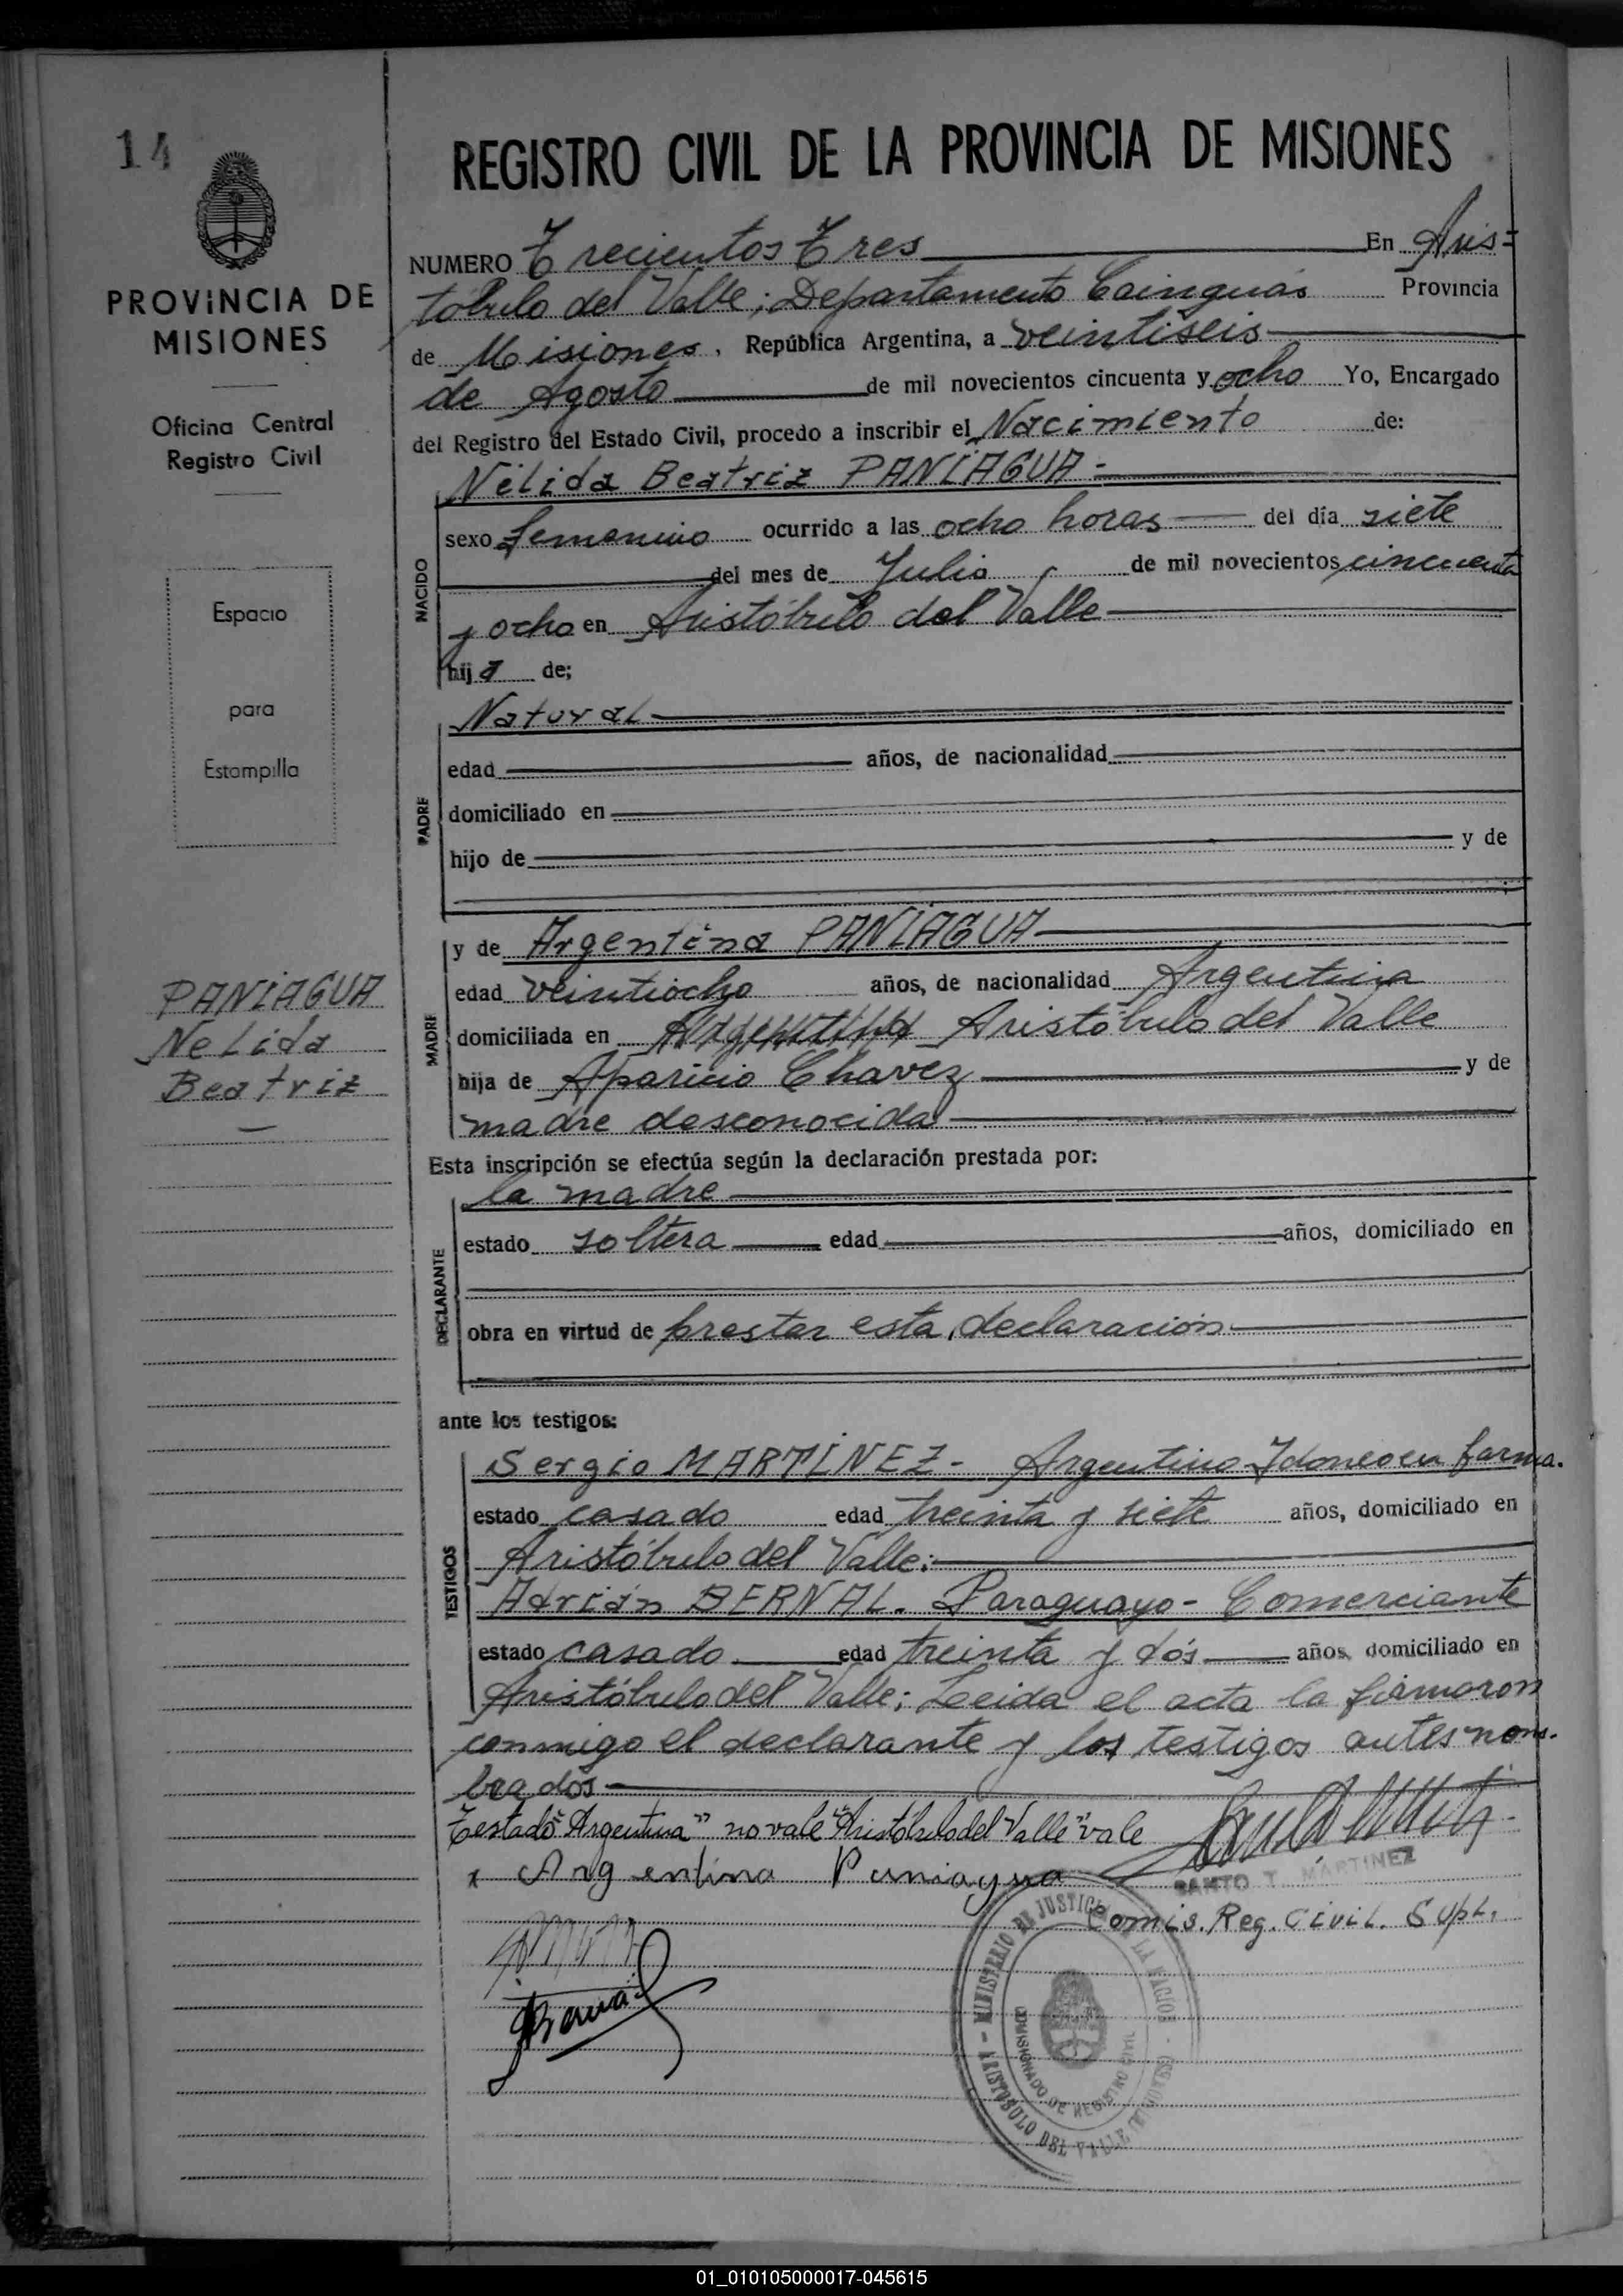 14
PROVINCIA DE
MISIONES
Oficina Central
Registro Civil
Espacio
para
Estampilla
PANIAGUA
Nelida
Beatriz
REGISTRO CIVIL DE LA PROVINCIA DE MISIONES
NUMERO Trecientos Tres En Aris=
tóbulo del Valle; Departamento Cainguás Provincia
de Misiones, República Argentina, a veintiseis
de Agosto de mil novecientos cincuenta y ocho Yo, Encargado
del Registro del Estado Civil, procedo a inscribir el Nacimiento de:
Nélida Beatriz PANIAGUA-
NACIDO
sexo femenino ocurrido a las ocho horas del día siete
del mes de Julio de mil novecientos cincuenta
y ocho en Aristóbulo del Valle
hija de;
PADRE
Natural
edad años, de nacionalidad
domiciliado en
hijo de y de
MADRE
y de Argentina PANIAGUA
edad veintiocho años, de nacionalidad Argentina
domiciliada en Argentina Aristóbulo del Valle
hija de Aparicio Chavez y de
madre desconocida
Esta inscripción se efectúa según la declaración prestada por:
DECLARANTE
la madre
estado soltera edad años, domiciliado en
obra en virtud de prestar esta declaración
ante los testigos:
TESTIGOS
Sergio MARTINEZ- Argentino Idoneo en farma.
estado casado edad treinta y siete años, domiciliado en
Aristóbulo del Valle:
Adrián BERNAL. Paraguayo- Comerciante
estado casado edad treinta y dós años, domiciliado en
Aristóbulo del Valle; Leida el acta la firmaron
conmigo el declarante y los testigos antes nom-
brados
Testado "Argentina" no vale "Aristóbulo del Valle" vale
x Argentina Paniagua
SANTO T. MARTINEZ
Comis. Reg. Civil. Supl.
Bernal
MINISTERIO DE JUSTICIA DE LA NACION
COMISIONADO DE REGISTRO CIVIL
ARISTOBULO DEL VALLE (MISIONES)
01_010105000017-045615